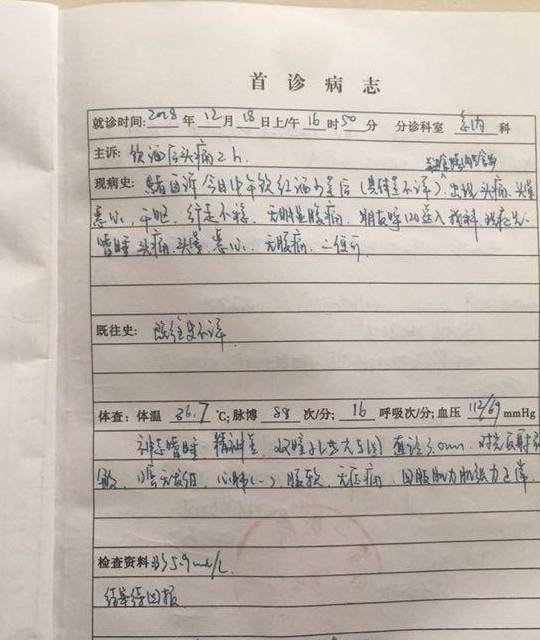 首诊病志
就诊时间: 2018 年 12 月 18 日上/午 16 时 50 分 分诊科室 急内 科
主诉: 饮酒后头痛2h.
现病史: 患者自诉今日中午饮红酒少量后(具体量不详), 出现头痛、头晕
恶心、干呕、行走不稳, 无明显腹痛, 朋友呼120送入我科, 现症见:
嗜睡 头痛、头晕 恶心、无腹痛、二便可
既往史: 既往史不详
体查: 体温 36.7 ℃; 脉博 88 次/分; 16 呼吸次/分; 血压 112/69 mmHg
神志嗜睡 精神差, 双瞳孔等大等圆 直径3.0mm, 对光反射灵
敏, 口唇无发绀, 心肺(-), 腹软, 无压痛, 四肢肌力肌张力正常
检查资料 5.9 mmol/L
结果待回报